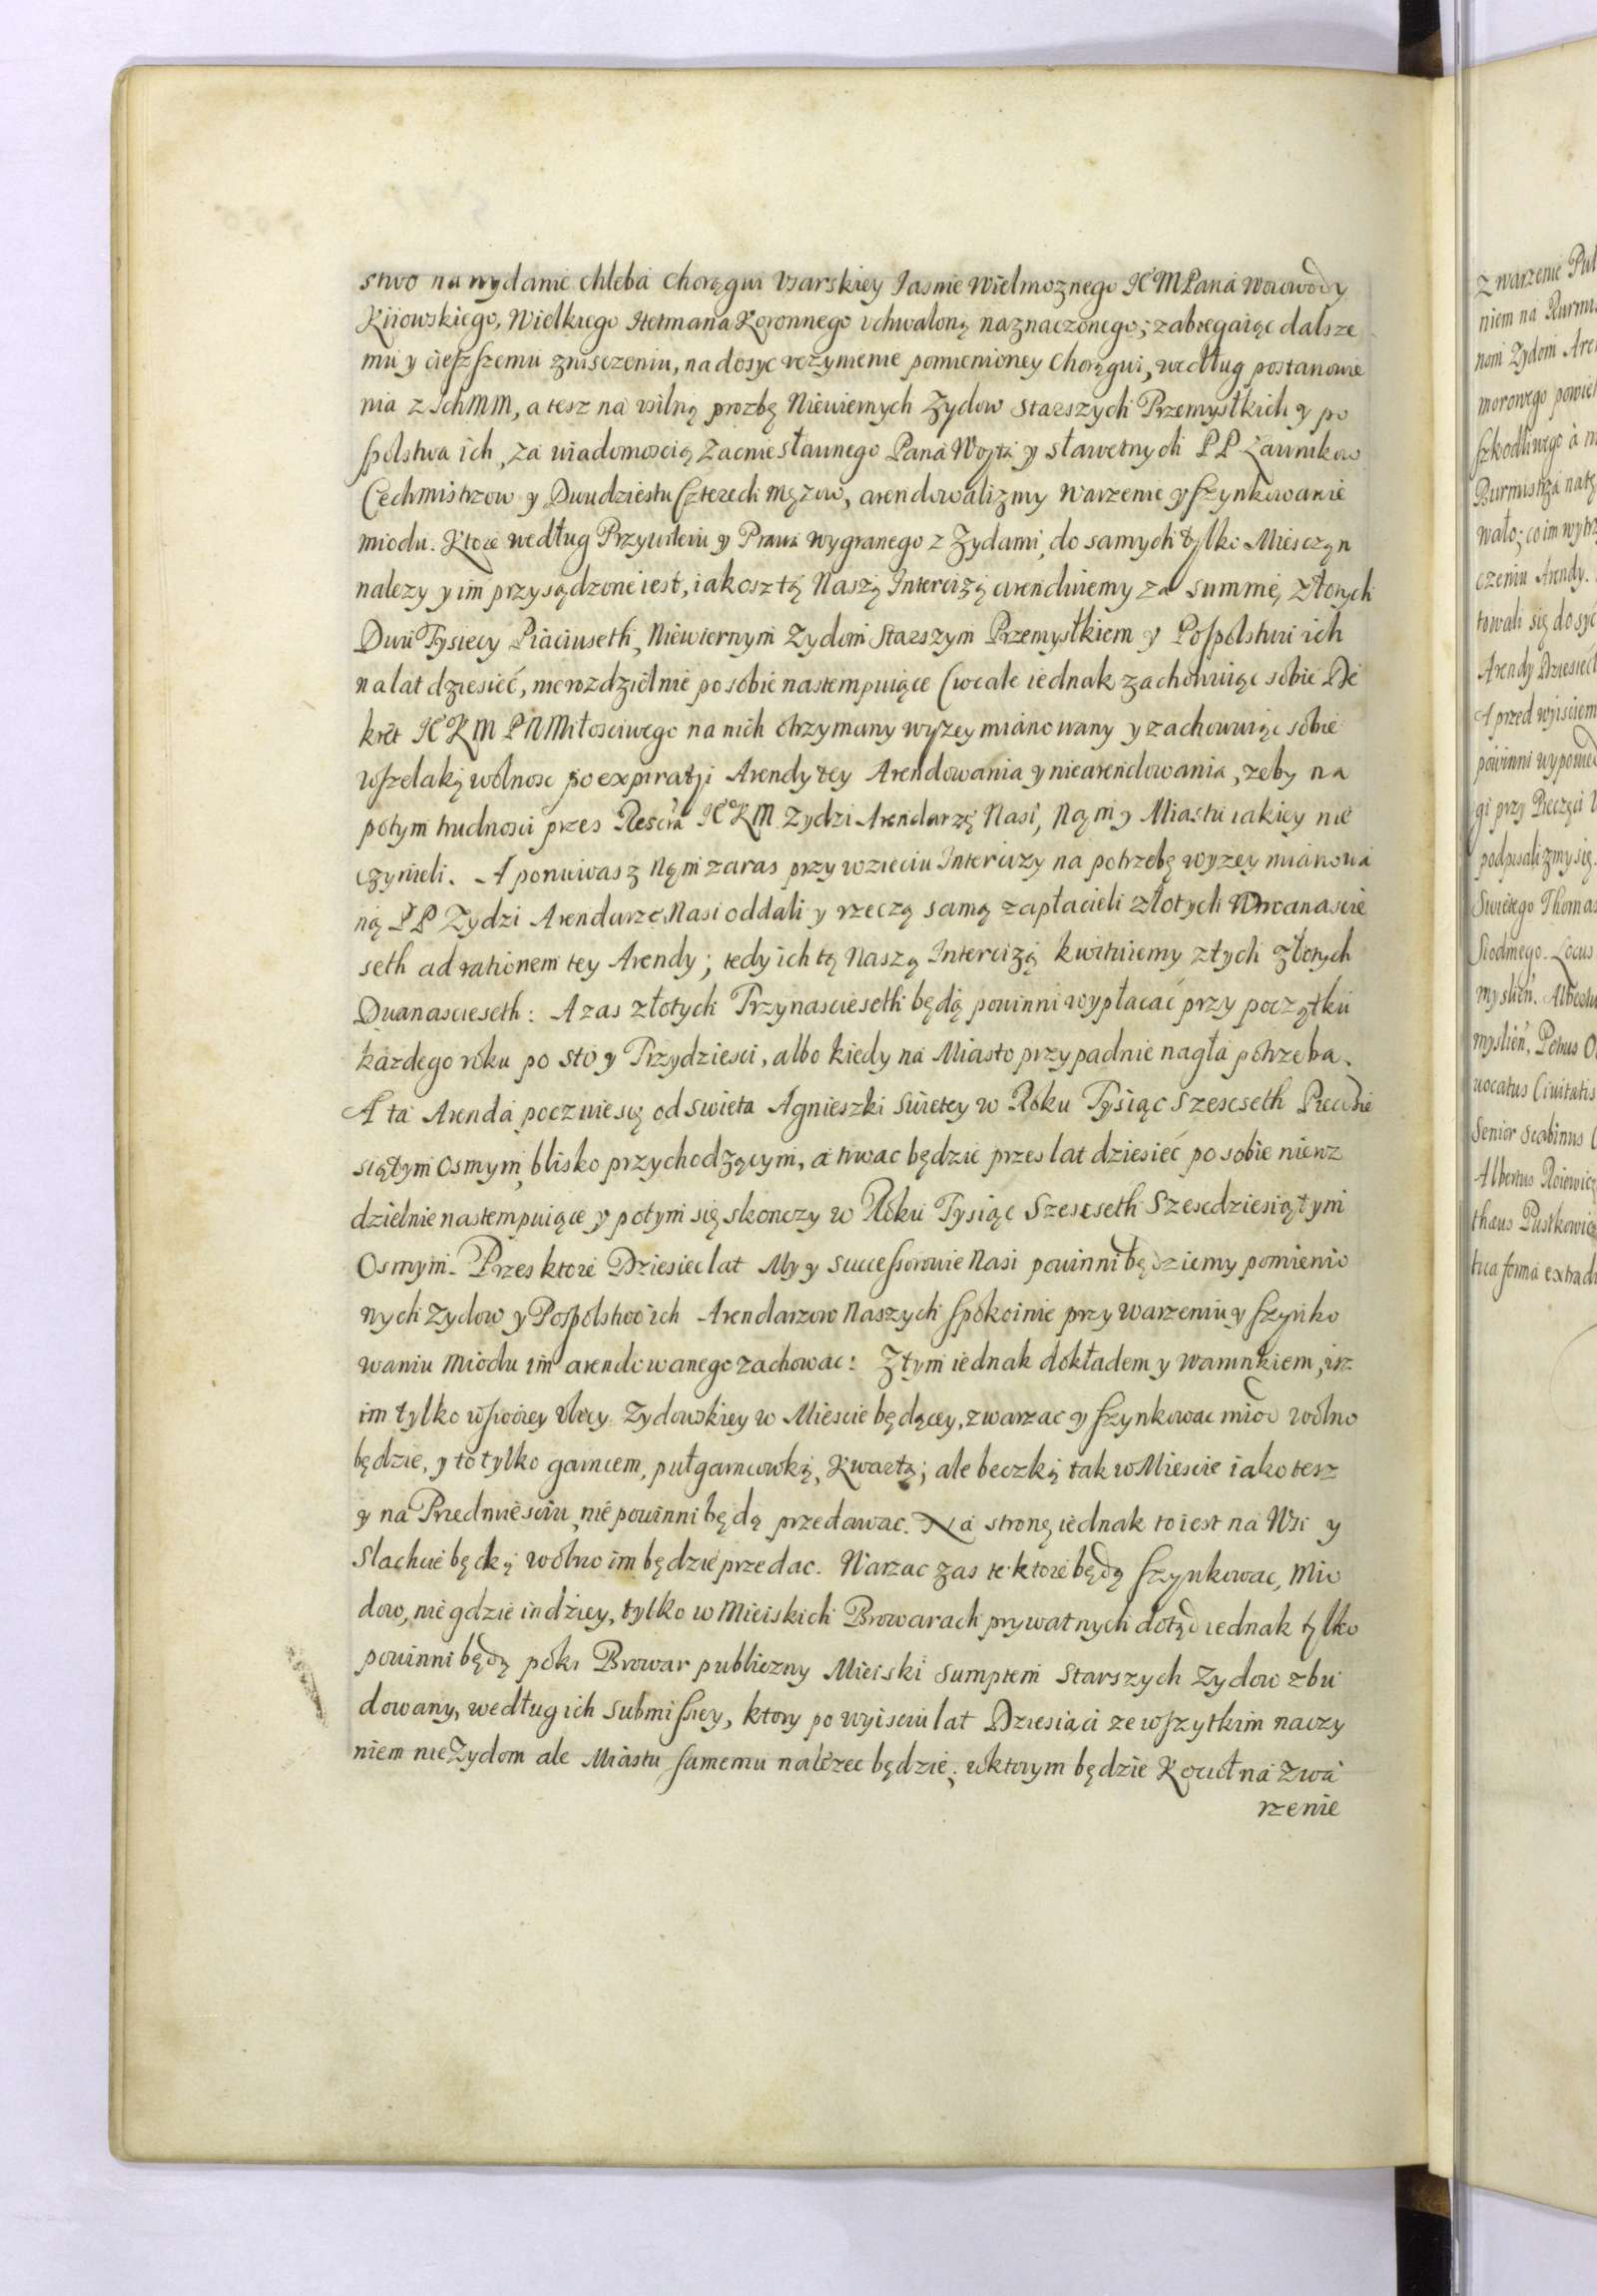 stwo na wydanie chleba Chorągwi Vsarskiey Iasnie Wielmoznego IE͠ M Pana Woiowody
Kiiowskiego, Wielkiego Hetmana Koronnego vchwaloną naznaczonego; zabiegaiąc dalsze
mu y cieszszemu znisczeniu, na dosyc vczynienie pomienioney Chorągwi, według postanowie
nia z IchMM, a tesz na vsilną prozbę Niewiernych Zydow Starszych Przemyslkich y po
spolstwa ich, za wiadomoscią Zacnie sławnego Pana Woyta y sławetnych PP Ławnikow
Cechmistrzow y Dwudziestu Czterech Męzow, arendowalizmy Warzenie y szynkowanie
miodu. Ktore według Przywileiu y Prawa wygranego z Zydami, do samych tylko Miesczan
nalezy y im przysądzone iest, iakosz tą Naszą Intercizą arenduiemy za summę złotych
Dwu Tysięcy Piąciuseth, Niewiernym Zydom Starszym Przemyslkiem y Pospolstwu ich
na lat dziesięć, nierozdzielnie po sobie nastempuiące (wcale iednak zachowuiąc sobie De
kret IE͠ K M P N Miłosciwego na nich otrzymany wyzey mianowany y zachowuiąc sobie
wszelaką wolnosc po expiratii Arendy tey Arendowania y niearendowania, zeby na
potym trudnosci przes IE͠ K M Zydzi Arendarzę Nasi, Nąm y Miastu iakiey nie
czynieli. A poniewasz Nąm zaras przy wzieciu Intercizy na potrzebę wyzey mianowa
ną PP Zydzi Arendarze Nasi oddali y rzeczą samą zapłacieli złotych Dwanascie
seth ad rationem tey Arendy; tedy ich tą Naszą Intercizą kwituiemy z tych złotych
Dwanascieseth: A zas złotych Trzynascieseth będą powinni wypłacać przy początku
kazdego roku po sto y Trzydziesci, albo kiedy na Miasto przypadnie nagła potrzeba.
A ta Arenda pocznie się od swieta Agnieszki Swietey w Roku Tysiąc Szescseth Piecdzie
siątym Osmym, blisko przychodzącym, a trwac będzie przes lat dziesięć po sobie nieroz
dzielnie nastempuiące y potym się skonczy w Roku Tysiąc Szescseth Szescdziesiątym
Osmym. Przes ktore Dziesiec lat My y Successorowie Nasi powinni będziemy pomienio
nych Zydow y Pospolstwo ich Arendarzow Naszych spokoinie przy Warzeniu y szynko
waniu Miodu im arendowanego zachowac: Z tym iednak dokładem y warunkiem, isz
im tylko w swoiey vlicy Zydowskiey w Miescie będącey, zwarzac y szynkowac miod wolno
będzie, y to tylko garncem, pułgarncowką, Kwartą; ale beczką tak w Miescie iako tesz
y na Przedmiesciu, nie powinni będą przedawac. Na stronę iednak to iest na Wsi y
Slachcie będką wolno im będzie przedac. Warzac zas te ktore będą szynkowac, Mio
dow, nie gdzie indziey, tylko w Mieiskich Browarach prywatnych dotąd iednak tylko
powinni będą poki Browar publiczny Mieiski sumptem Starszych Zydow zbu
dowany, według ich submissiey, ktory po wyisciu lat Dziesiąci ze wszytkim naczy
niem nie Zydom ale Miastu samemu nalezec będzie; w ktorym będzie Kocioł na zwa
rzenie
Z warzenie
niem na Burmis
nani Zydom Are
morowego powie
szkodliwego a
Burmistrza
wało; co im
czeniu Arendy.
towali się dosyć
Arendy Dziesieć
A przed wyisciem
powinni wypowied
gi przy Pieczęci
podpisalizmy się.
Swietego Thomas
Siodmego. Locus
myslien. Albertus
myslien, Petrus
uocatus Ciuitatis
Senior Scabinus
Albertus
thæus Pustkowicz
tua forma extrad